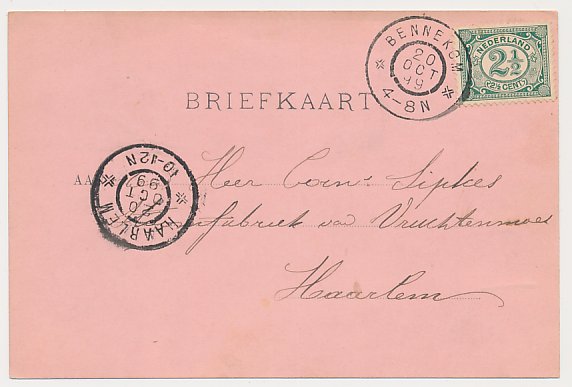 BENNEKOM
20
OCT
99
4-8N
NEDERLAND
2½
(2½ CENT)
BRIEFKAART
HAARLEM
20
OCT
99
10-12N
AA
Heer Corns. Sipkes
fabriek van Vruchtenmoes
Haarlem